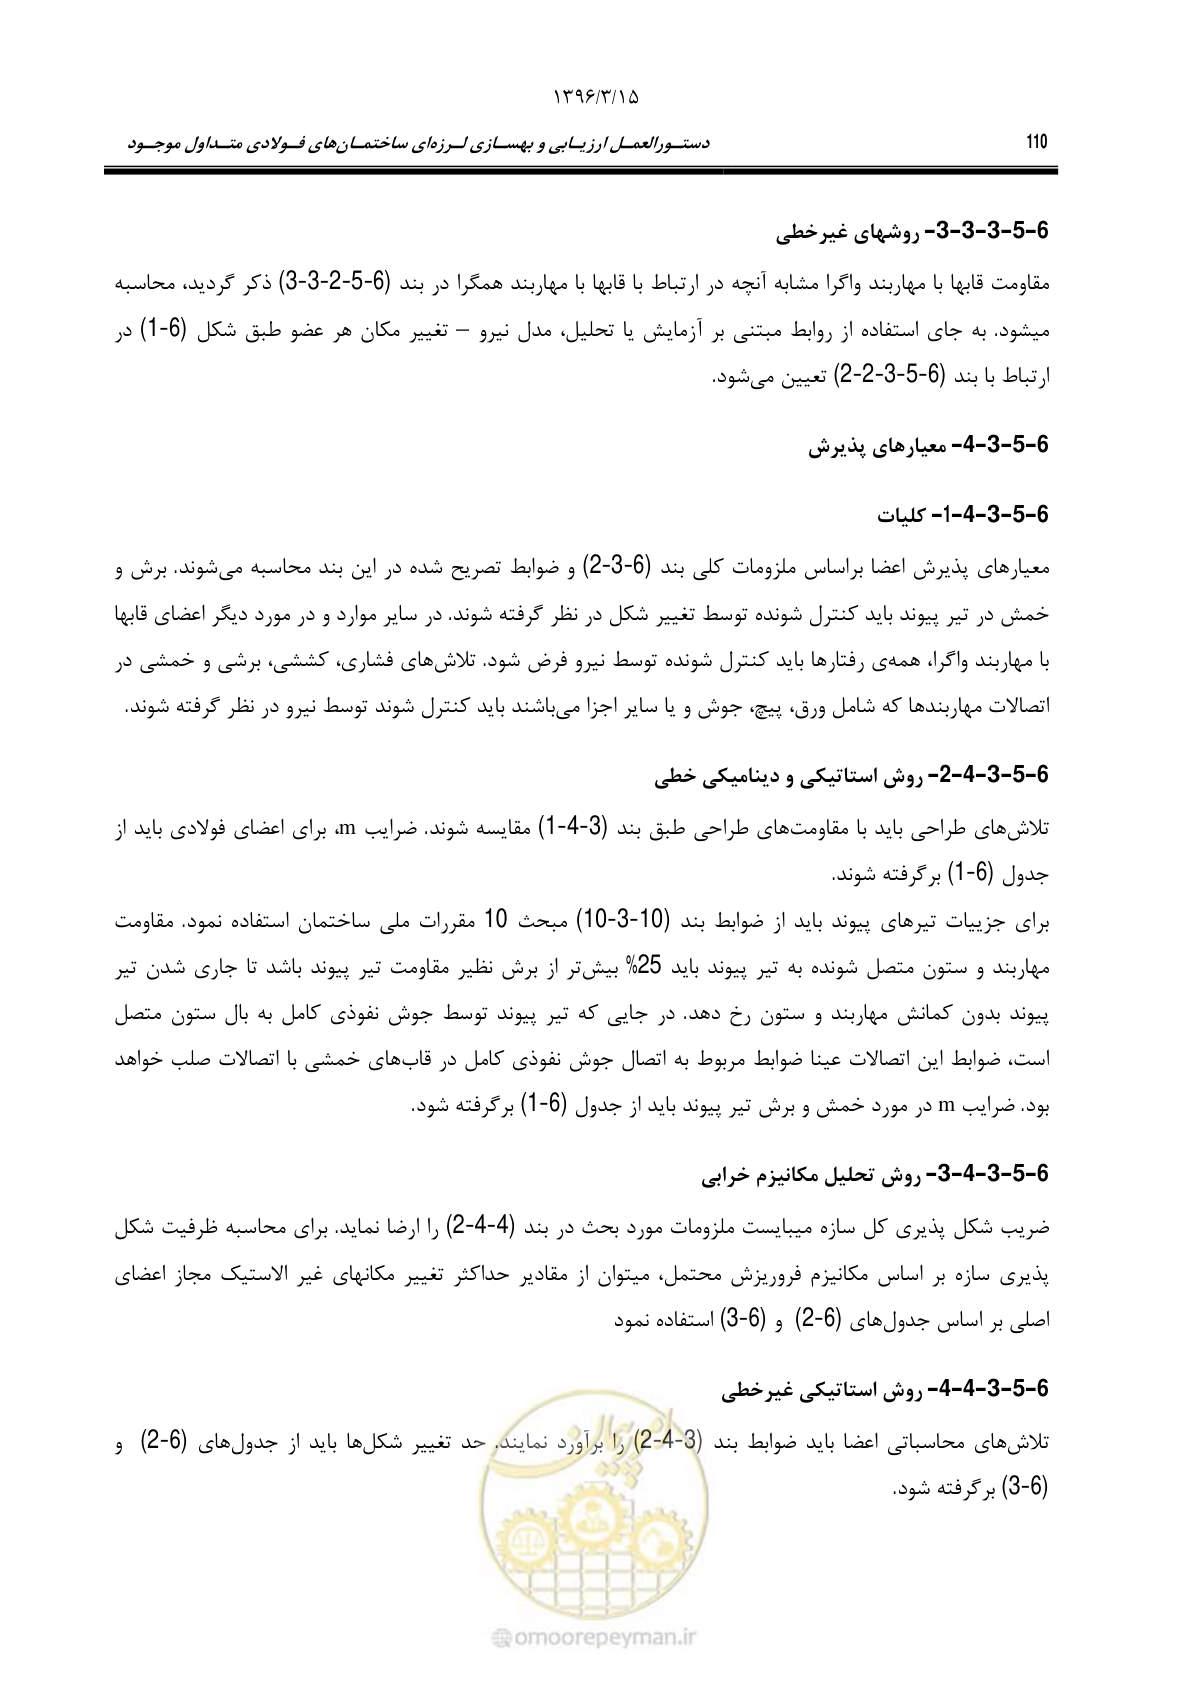 ۱۳۹۶/۳/۱۵
110 دستـورالعمـل ارزیـابی و بهسـازی لـرزه‌ای ساختمـان‌های فـولادی متـداول موجـود
6-5-3-3-3- روشهای غیرخطی
مقاومت قابها با مهاربند واگرا مشابه آنچه در ارتباط با قابها با مهاربند همگرا در بند (6-5-2-3-3) ذکر گردید، محاسبه
میشود. به جای استفاده از روابط مبتنی بر آزمایش یا تحلیل، مدل نیرو – تغییر مکان هر عضو طبق شکل (6-1) در
ارتباط با بند (6-5-3-2-2) تعیین می‌شود.
6-5-3-4- معیارهای پذیرش
6-5-3-4-1- کلیات
معیارهای پذیرش اعضا براساس ملزومات کلی بند (6-3-2) و ضوابط تصریح شده در این بند محاسبه می‌شوند. برش و
خمش در تیر پیوند باید کنترل شونده توسط تغییر شکل در نظر گرفته شوند. در سایر موارد و در مورد دیگر اعضای قابها
با مهاربند واگرا، همه‌ی رفتارها باید کنترل شونده توسط نیرو فرض شود. تلاش‌های فشاری، کششی، برشی و خمشی در
اتصالات مهاربندها که شامل ورق، پیچ، جوش و یا سایر اجزا می‌باشند باید کنترل شوند توسط نیرو در نظر گرفته شوند.
6-5-3-4-2- روش استاتیکی و دینامیکی خطی
تلاش‌های طراحی باید با مقاومت‌های طراحی طبق بند (3-4-1) مقایسه شوند. ضرایب m، برای اعضای فولادی باید از
جدول (6-1) برگرفته شوند.
برای جزییات تیرهای پیوند باید از ضوابط بند (10-3-10) مبحث 10 مقررات ملی ساختمان استفاده نمود. مقاومت
مهاربند و ستون متصل شونده به تیر پیوند باید 25% بیش‌تر از برش نظیر مقاومت تیر پیوند باشد تا جاری شدن تیر
پیوند بدون کمانش مهاربند و ستون رخ دهد. در جایی که تیر پیوند توسط جوش نفوذی کامل به بال ستون متصل
است، ضوابط این اتصالات عینا ضوابط مربوط به اتصال جوش نفوذی کامل در قاب‌های خمشی با اتصالات صلب خواهد
بود. ضرایب m در مورد خمش و برش تیر پیوند باید از جدول (6-1) برگرفته شود.
6-5-3-4-3- روش تحلیل مکانیزم خرابی
ضریب شکل پذیری کل سازه میبایست ملزومات مورد بحث در بند (4-4-2) را ارضا نماید. برای محاسبه ظرفیت شکل
پذیری سازه بر اساس مکانیزم فروریزش محتمل، میتوان از مقادیر حداکثر تغییر مکانهای غیر الاستیک مجاز اعضای
اصلی بر اساس جدول‌های (6-2) و (6-3) استفاده نمود
6-5-3-4-4- روش استاتیکی غیرخطی
تلاش‌های محاسباتی اعضا باید ضوابط بند (3-4-2) را برآورد نمایند. حد تغییر شکل‌ها باید از جدول‌های (6-2) و
(6-3) برگرفته شود.
امور پیمان
omoorepeyman.ir